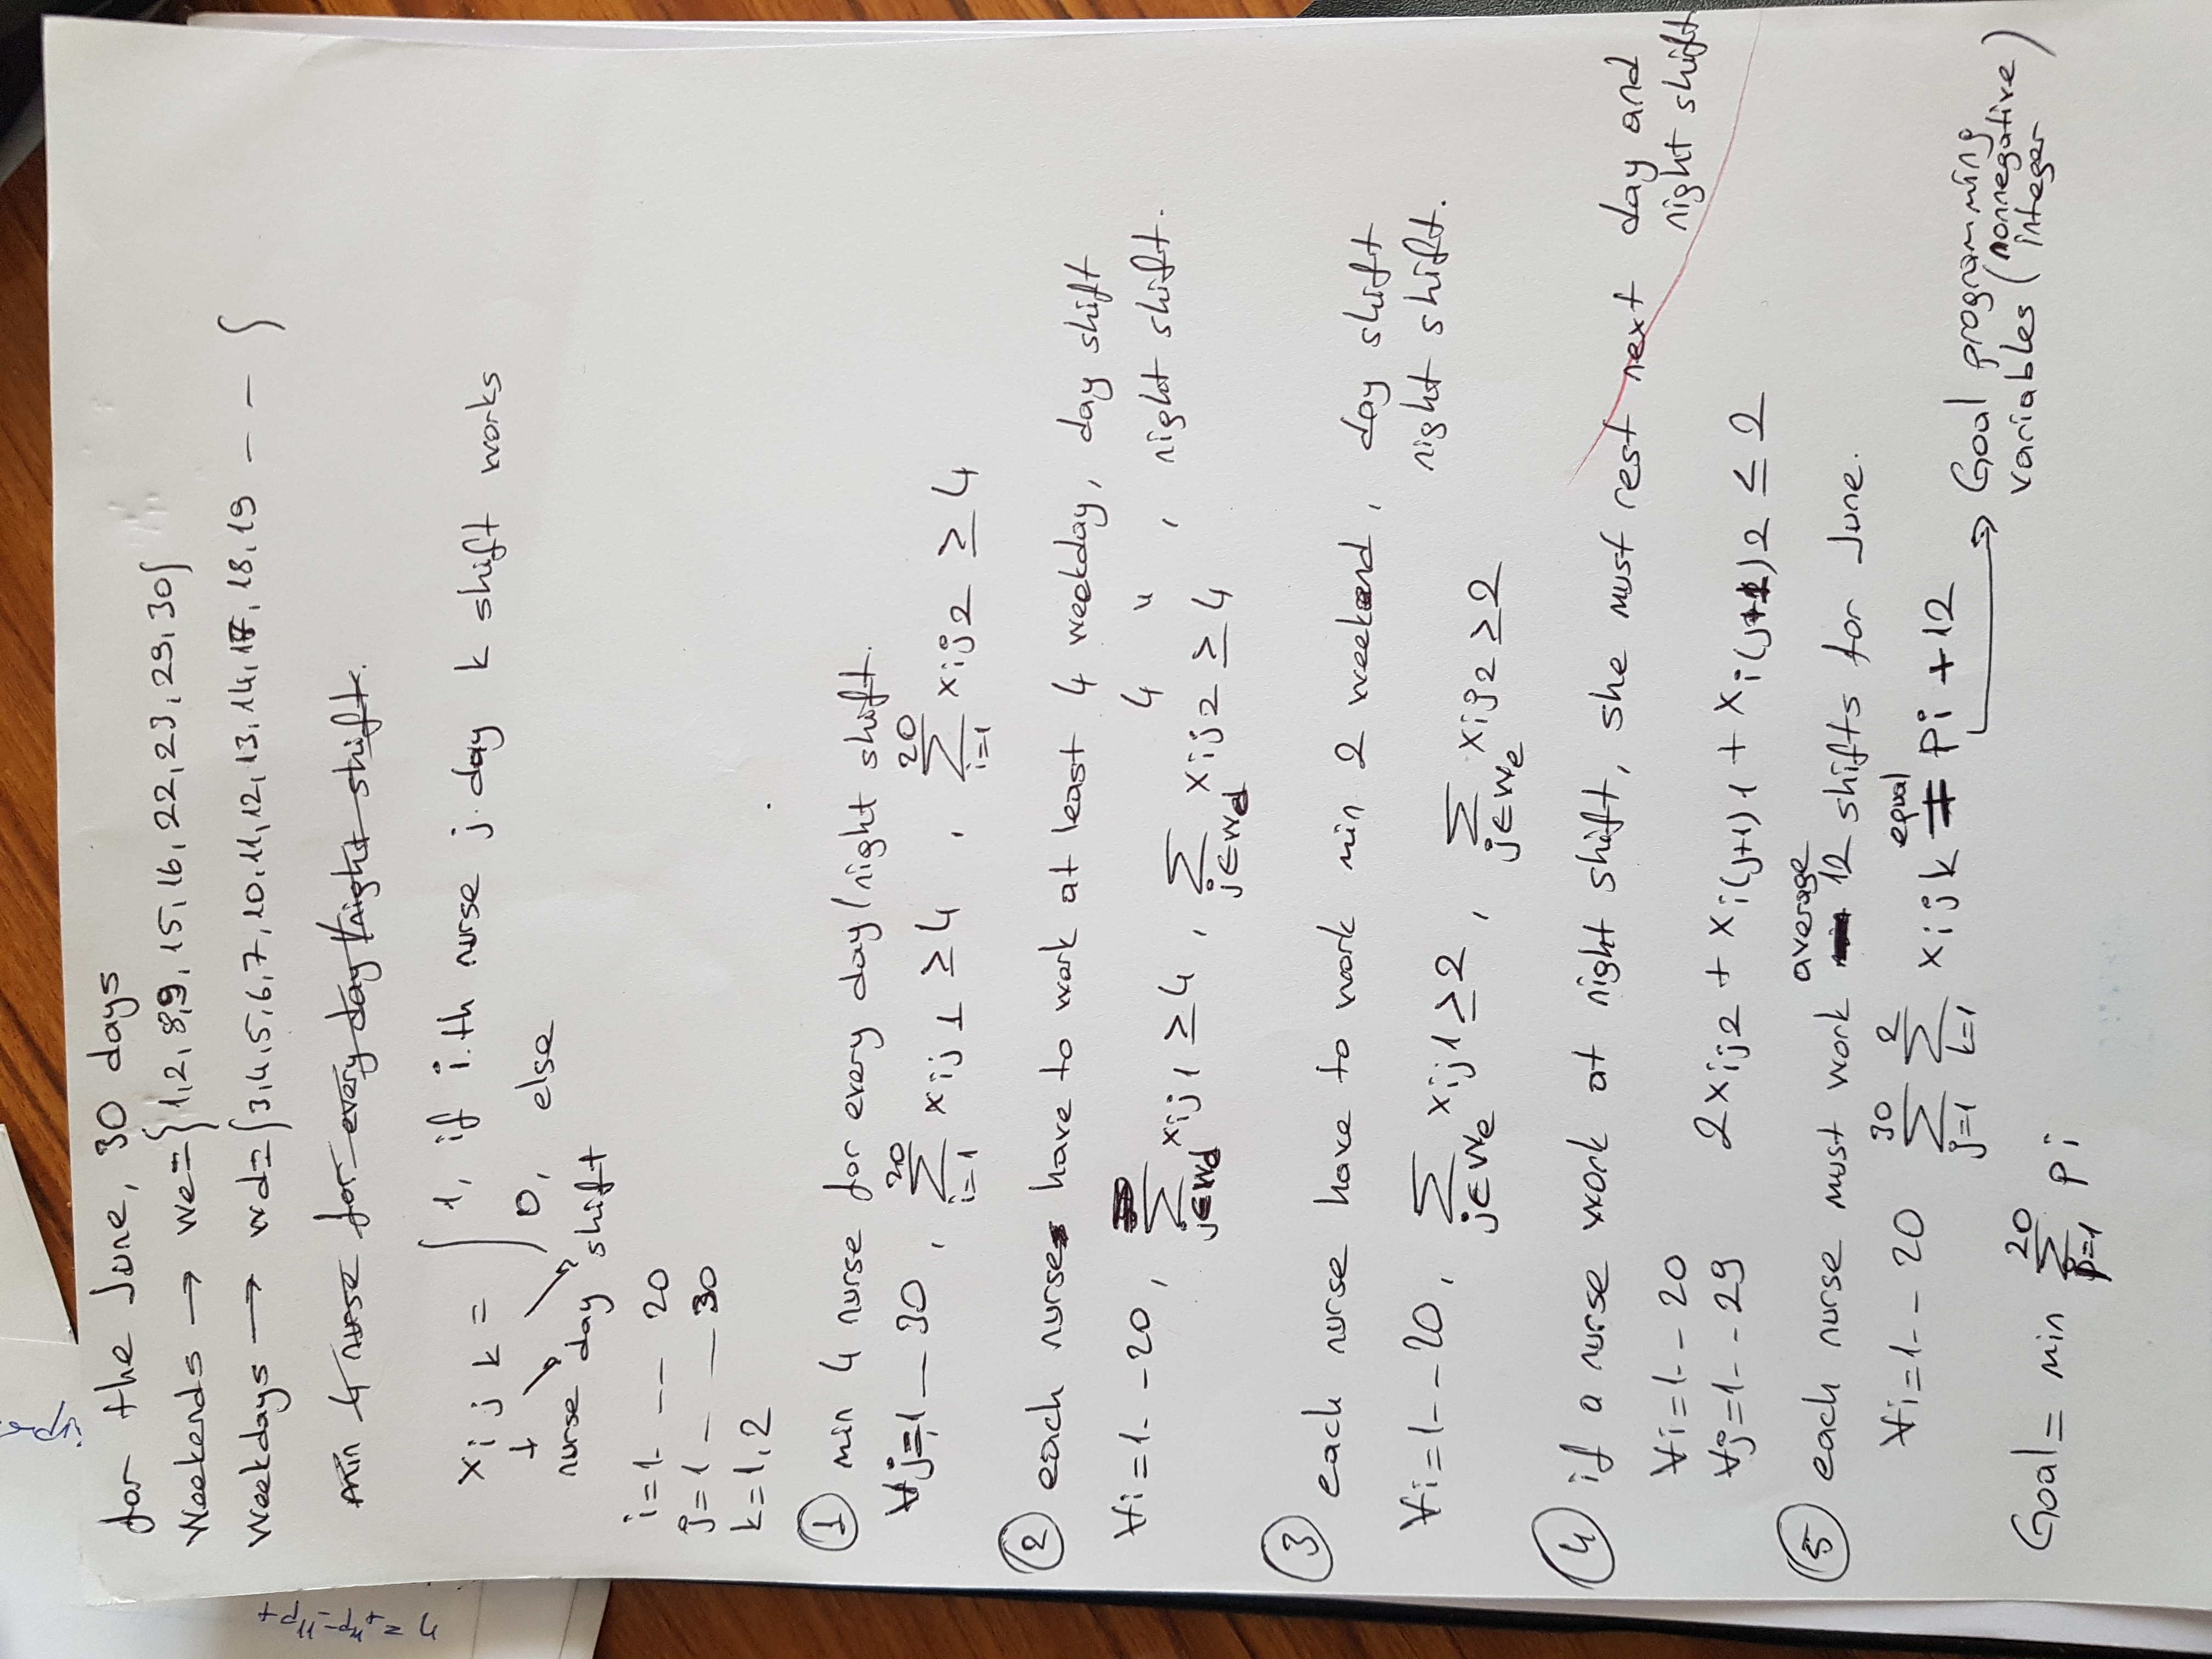 for the June, 30 days
Weekends → we={1,2,8,9,15,16,22,23,29,30}
Weekdays → wd={3,4,5,6,7,10,11,12,13,14,17,18,19 - - }
min 4 nurse for every day/night shift.
xijk = { 1, if i.th nurse j.day k shift works
0, else
nurse day shift
i=1 - -- 20
j=1 - -- 30
k=1,2
① min 4 nurse for every day/night shift.
∀j=1 -- 30, 20∑i=1 xij1 ≥ 4, 20∑i=1 xij2 ≥ 4
② each nurse have to work at least 4 weekday, day shift
4 " , night shift.
∀i=1--20, ∑j∈wd xij1 ≥ 4, ∑j∈wd xij2 ≥ 4
③ each nurse have to work min 2 weekend, day shift
night shift.
∀i=1--20, ∑j∈we xij1 ≥ 2, ∑j∈we xij2 ≥ 2
④ if a nurse work at night shift, she must rest next day and
night shift
∀i=1--20
∀j=1--29 2xij2 + xi(j+1)1 + xi(j+1)2 ≤ 2
average
⑤ each nurse must work 12 shifts for June.
equal
∀i=1--20 30∑j=1 2∑k=1 xijk = Pi + 12
→ Goal programming
variables (nonnegative
integer)
Goal = min 20∑p=1 Pi